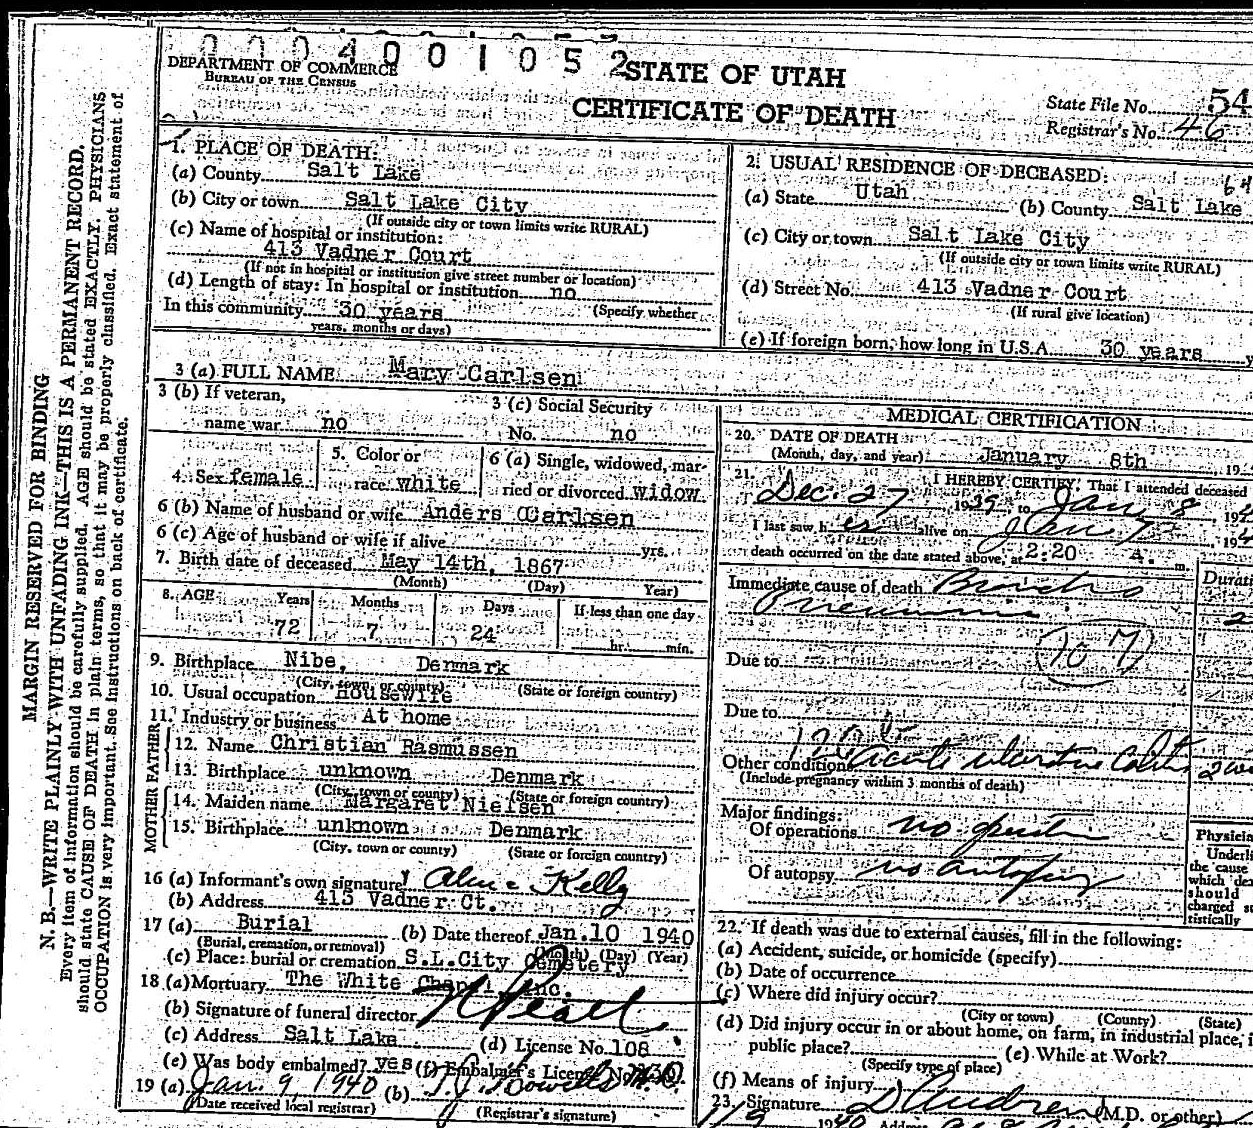 0004001052
DEPARTMENT OF COMMERCE
BUREAU OF THE CENSUS
STATE OF UTAH
CERTIFICATE OF DEATH
State File No. 54
Registrar's No. 46
MARGIN RESERVED FOR BINDING
N. B.—WRITE PLAINLY WITH UNFADING INK—THIS IS A PERMANENT RECORD.
Every item of information should be carefully supplied. AGE should be stated EXACTLY. PHYSICIANS
should state CAUSE OF DEATH in plain terms, so that it may be properly classified. Exact statement of
OCCUPATION is very important. See instructions on back of certificate.
1. PLACE OF DEATH:
(a) County Salt Lake
(b) City or town Salt Lake City
(If outside city or town limits write RURAL)
(c) Name of hospital or institution:
413 Vadner Court
(If not in hospital or institution give street number or location)
(d) Length of stay: In hospital or institution no
(Specify whether
In this community 30 years
years, months or days)
2. USUAL RESIDENCE OF DECEASED:
(a) State Utah (b) County Salt Lake
(c) City or town Salt Lake City
(If outside city or town limits write RURAL)
(d) Street No. 413 Vadner Court
(If rural give location)
(e) If foreign born, how long in U.S.A. 30 years
3 (a) FULL NAME Mary Carlsen
3 (b) If veteran,
name war no
3 (c) Social Security
No. no
4. Sex female
5. Color or
race white
6 (a) Single, widowed, mar-
ried or divorced widow
6 (b) Name of husband or wife Anders Carlsen
6 (c) Age of husband or wife if alive yrs.
7. Birth date of deceased May 14th, 1867
(Month) (Day) Year)
8. AGE Years Months Days If less than one day
72 7 24 hr. min.
9. Birthplace Nibe, Denmark
(City, town or county) (State or foreign country)
10. Usual occupation Housewife
11. Industry or business At home
FATHER
12. Name Christian Rasmussen
13. Birthplace unknown Denmark
(City, town or county) (State or foreign country)
MOTHER
14. Maiden name Margaret Nielsen
15. Birthplace unknown Denmark
(City, town or county) (State or foreign country)
16 (a) Informant's own signature Kelly
(b) Address 413 Vadner Ct.
17 (a) Burial (b) Date thereof Jan.10 1940
(Burial, cremation, or removal) (Month) (Day) (Year)
(c) Place: burial or cremation S.L.City Cemetery
18 (a) Mortuary The White Chapel Inc.
(b) Signature of funeral director
(c) Address Salt Lake (d) License No. 108
(e) Was body embalmed? yes (f) Embalmer's License No.
19 (a) Jan. 9, 1940 (b)
(Date received local registrar) (Registrar's signature)
MEDICAL CERTIFICATION
20. DATE OF DEATH
(Month, day, and year) January 8th 19
21. I HEREBY CERTIFY, That I attended deceased
Dec. 27, 1939, to Jan 8, 194
I last saw h er alive on Jan 7 194
death occurred on the date stated above, at 2:20 A. m.
Immediate cause of death Broncho
Pneumonia
107
Durati
Due to
Due to
Other conditions acute ulcerative Colitis
(Include pregnancy within 3 months of death)
Major findings:
Of operations no operation
Of autopsy no autopsy
Physicia
Underli
the cause
which dea
should
charged st
tistically
22. If death was due to external causes, fill in the following:
(a) Accident, suicide, or homicide (specify)
(b) Date of occurrence
(c) Where did injury occur?
(City or town) (County) (State)
(d) Did injury occur in or about home, on farm, in industrial place, i
public place? (e) While at Work?
(Specify type of place)
(f) Means of injury
23. Signature (M.D. or other)